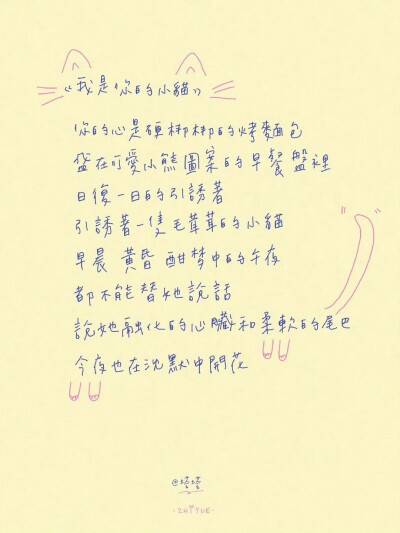 《我是你的小貓》
你的心是硬梆梆的烤麵包
盛在可愛小熊圖案的早餐盤裡
日復一日的引誘著
引誘著一隻毛茸茸的小貓
早晨 黃昏 酣梦中的午夜
都不能替她說話
說她融化的心臟和柔軟的尾巴
今夜也在沈默中開花
@塔塔
·ZHIYUE·